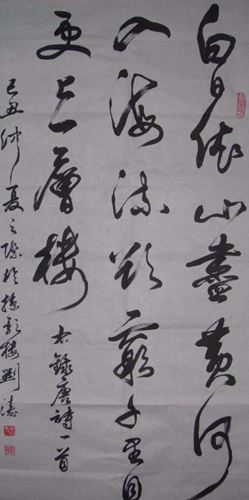 白日依山盡黄河
入海流欲窮千里目
更上層樓
右錄唐詩一首
己丑仲夏之際於捻影樓劉濤